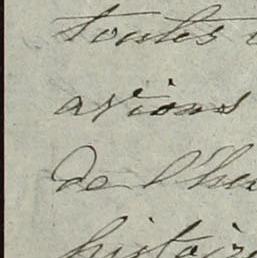 toutes
avions
de l'heu
histoire